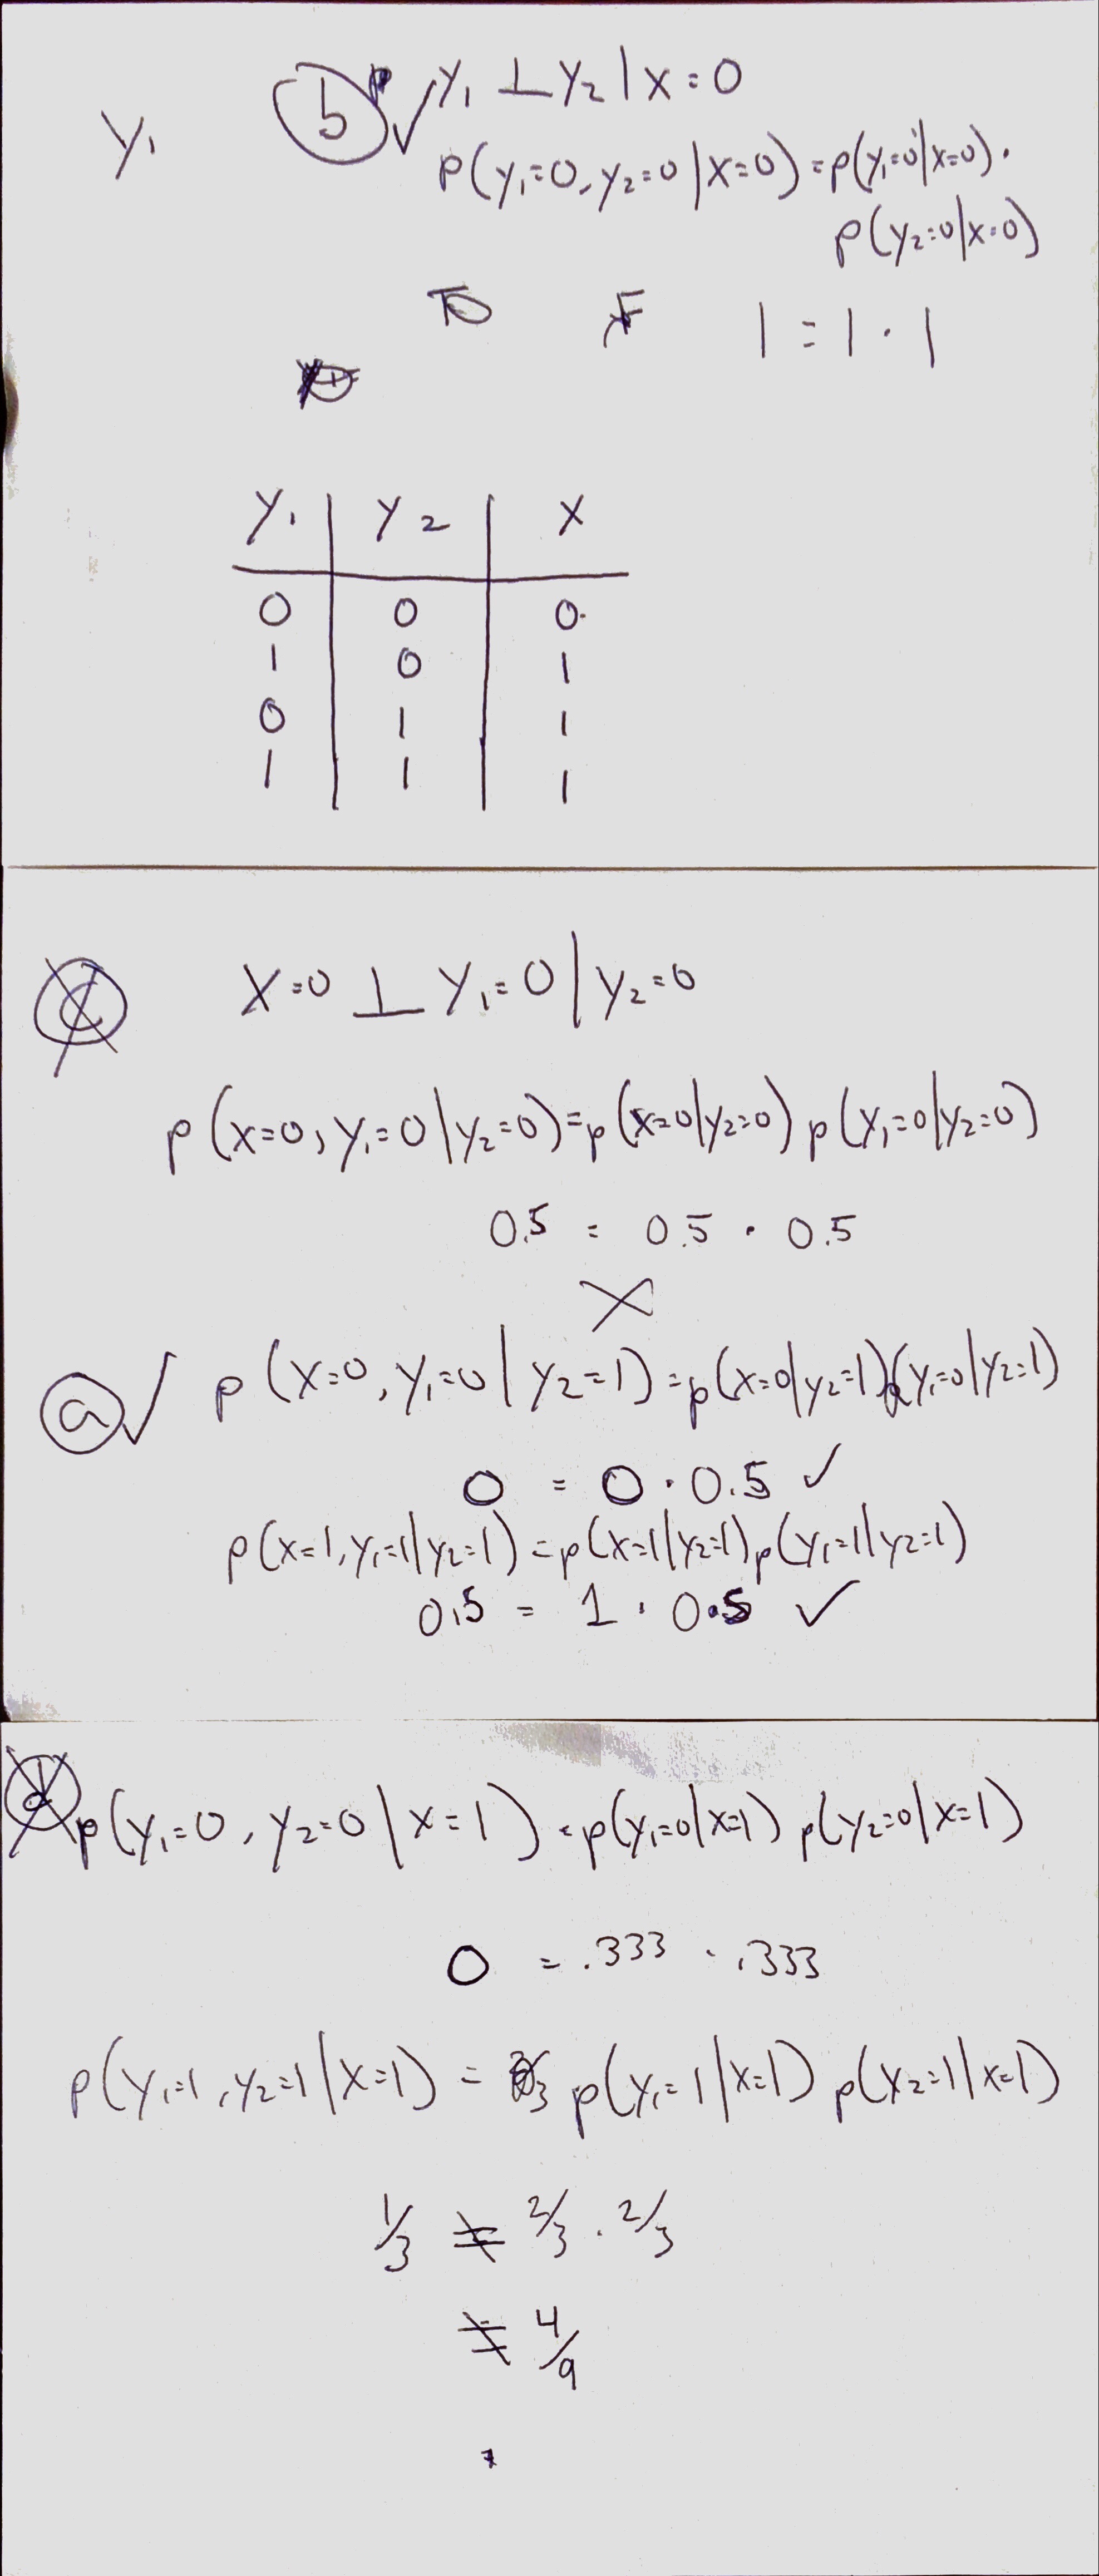 y₁ (b) ✓ y₁ ⊥ y₂ | x=0
p(y₁=0, y₂=0 | x=0) = p(y₁=0|x=0) ·
p(y₂=0|x=0)
1 = 1 · 1
y₁ | y₂ | x
0 | 0 | 0
1 | 0 | 1
0 | 1 | 1
1 | 1 | 1
(c) x=0 ⊥ y₁=0 | y₂=0
p(x=0, y₁=0 | y₂=0) = p(x=0|y₂=0) p(y₁=0|y₂=0)
0.5 = 0.5 · 0.5
X
(a) ✓ p(x=0, y₁=0 | y₂=1) = p(x=0|y₂=1) p(y₁=0|y₂=1)
0 = 0 · 0.5 ✓
p(x=1, y₁=1|y₂=1) = p(x=1|y₂=1) p(y₁=1|y₂=1)
0.5 = 1 · 0.5 ✓
(d) p(y₁=0, y₂=0 | x=1) = p(y₁=0|x=1) p(y₂=0|x=1)
0 = .333 · .333
p(y₁=1, y₂=1 | x=1) = p(y₁=1|x=1) p(y₂=1|x=1)
1/3 ≠ 2/3 · 2/3
≠ 4/9